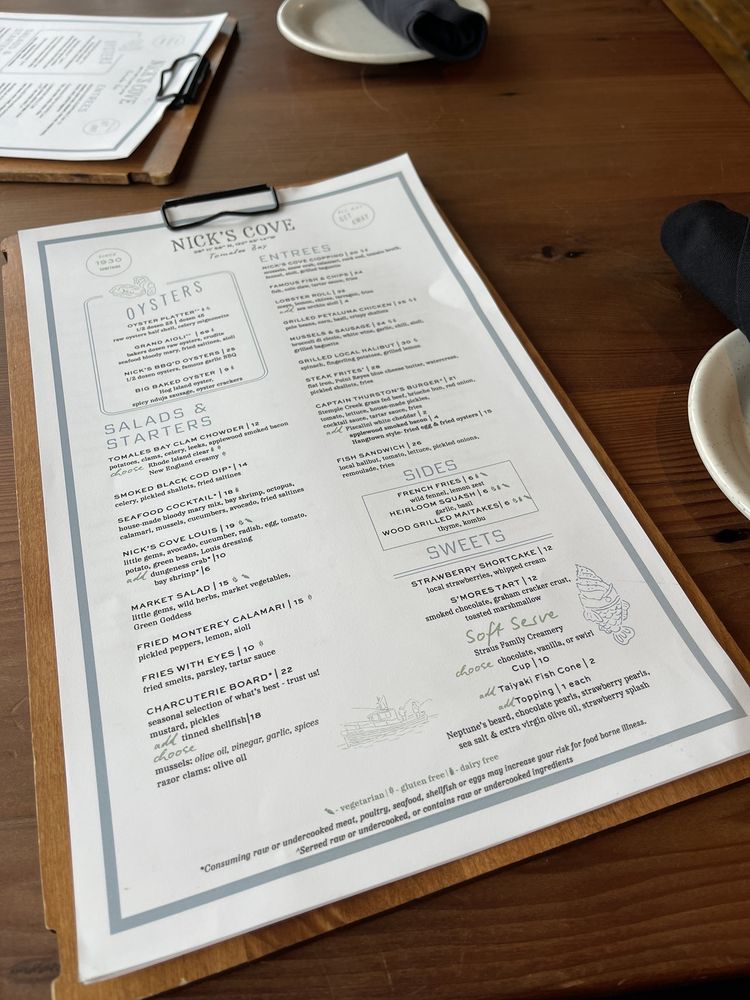 NICK'S COVE
Tomales Bay
Since
1930
OYSTERS
OYSTER PLATTER
1/2 dozen 23 | dozen 45
raw oysters half shell, celery mignonette
GRAND AIOLI
bakers dozen raw oysters, crudite
seafood bloody mary, fried saltines, aioli
NICK'S BBQ'D OYSTERS | 25
1/2 dozen oysters, famous garlic BBQ
BIG BAKED OYSTER | 9
Hog Island oyster,
spicy nduja sausage, oyster crackers
SALADS &
STARTERS
TOMALES BAY CLAM CHOWDER | 12
potatoes, clams, celery, leeks, applewood smoked bacon
choose Rhode Island clear
New England creamy
SMOKED BLACK COD DIP* | 14
celery, pickled shallots, fried saltines
SEAFOOD COCKTAIL* | 18
house-made bloody mary mix, bay shrimp, octopus,
calamari, mussels, cucumbers, avocado, fried saltines
NICK'S COVE LOUIS | 19
little gems, avocado, cucumber, radish, egg, tomato,
potato, green beans, Louis dressing
add dungeness crab*|10
bay shrimp*|6
MARKET SALAD | 15
little gems, wild herbs, market vegetables,
Green Goddess
FRIED MONTEREY CALAMARI | 15
pickled peppers, lemon, aioli
FRIES WITH EYES | 10
fried smelts, parsley, tartar sauce
CHARCUTERIE BOARD* | 22
seasonal selection of what's best - trust us!
mustard, pickles
add tinned shellfish|18
choose
mussels: olive oil, vinegar, garlic, spices
razor clams: olive oil
GET
AWAY
ENTREES
NICK'S COVE CIOPPINO
fennel, aioli, grilled baguette
FAMOUS FISH & CHIPS | 24
fish, cole slaw, tartar sauce, fries
LOBSTER ROLL
mayo, lemon, chives, tarragon, fries
add
GRILLED PETALUMA CHICKEN | 25
pole beans, corn, basil, crispy shallots
MUSSELS & SAUSAGE | 24
broccoli di ciccio, white wine, garlic, chili, aioli,
grilled baguette
GRILLED LOCAL HALIBUT
spinach, fingerling potatoes, grilled lemon
STEAK FRITES* | 28
flat iron, Point Reyes blue cheese butter, watercress,
pickled shallots, fries
CAPTAIN THURSTON'S BURGER* | 21
Stemple Creek grass fed beef, brioche bun, red onion,
tomato, lettuce, house-made pickles,
cocktail sauce, tartar sauce, fries
add Fiscalini white cheddar | 2
applewood smoked bacon | 4
Hangtown style- fried egg & fried oysters | 15
FISH SANDWICH | 26
local halibut, tomato, lettuce, pickled onions,
remoulade, fries
SIDES
FRENCH FRIES | 6
wild fennel, lemon zest
HEIRLOOM SQUASH | 6
garlic, basil
WOOD GRILLED MAITAKES | 6
thyme, kombu
SWEETS
STRAWBERRY SHORTCAKE | 12
local strawberries, whipped cream
S'MORES TART | 12
smoked chocolate, graham cracker crust,
toasted marshmallow
Soft Serve
Straus Family Creamery
choose chocolate, vanilla, or swirl
Cup | 10
add Taiyaki Fish Cone | 2
add Topping | 1 each
Neptune's beard, chocolate pearls, strawberry pearls,
sea salt & extra virgin olive oil, strawberry splash
- vegetarian | - gluten free | - dairy free
*Consuming raw or undercooked meat, poultry, seafood, shellfish or eggs may increase your risk for food borne illness.
^Served raw or undercooked, or contains raw or undercooked ingredients
NICK'S COVE
OYSTERS
ENTREES